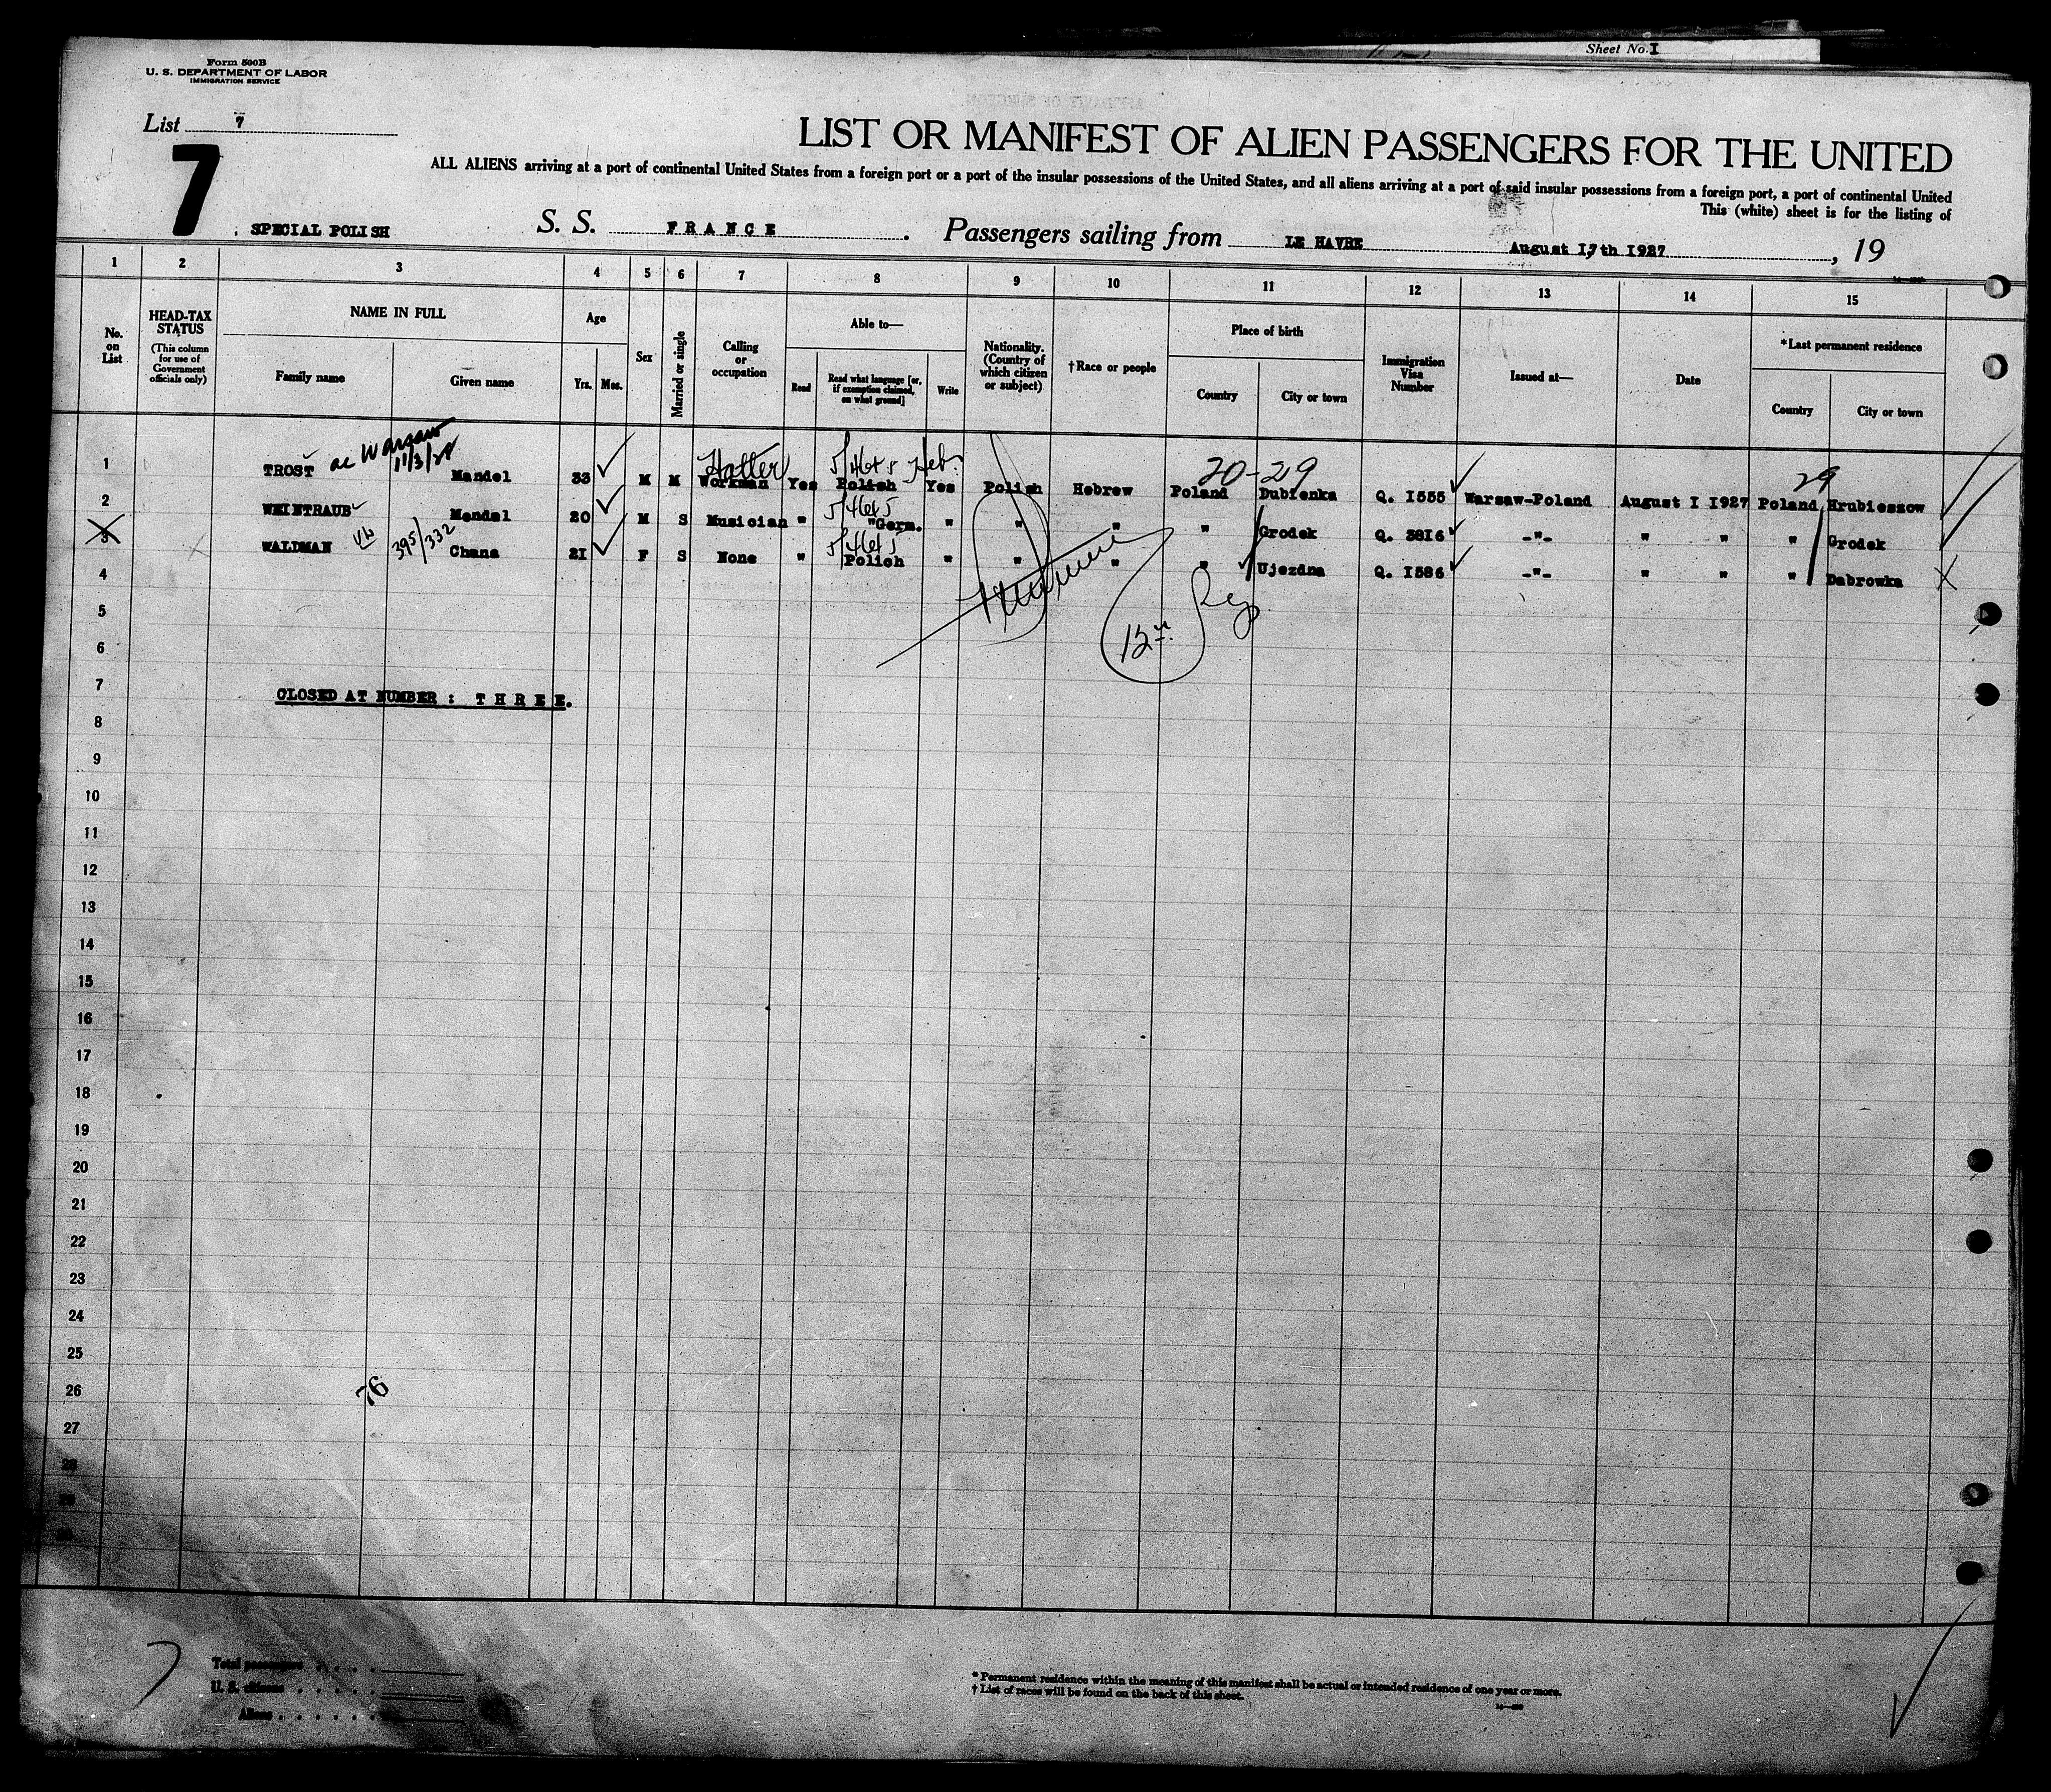 Sheet No. I
Form 500B
U. S. DEPARTMENT OF LABOR
IMMIGRATION SERVICE
List 7
7
LIST OR MANIFEST OF ALIEN PASSENGERS FOR THE UNITED
ALL ALIENS arriving at a port of continental United States from a foreign port or a port of the insular possessions of the United States, and all aliens arriving at a port of said insular possessions from a foreign port, a port of continental United
This (white) sheet is for the listing of
SPECIAL POLISH S. S. FRANCE. Passengers sailing from LE HAVRE August 17th 1927, 19
1 2 3 4 5 6 7 8 9 10 11 12 13 14 15
No. on List
HEAD-TAX STATUS
(This column for use of Government officials only)
NAME IN FULL
Family name Given name
Age
Yrs. Mos.
Sex
Married or single
Calling or occupation
Able to—
Read Read what language [or, if exemption claimed, on what ground] Write
Nationality. (Country of which citizen or subject)
†Race or people
Place of birth
Country City or town
Immigration Visa Number
Issued at—
Date
*Last permanent residence
Country City or town
Warsaw
11/3/28
Hatter
Heb.
20-29
29
1 TROST Mandel 33 M M Workman Yes Polish Yes Polish Hebrew Poland Dubienka Q. I555 Warsaw-Poland August I 1927 Poland Hrubieszow
2 WEINTRAUB Mendel 20 M S Musician " "Germ. " " " " Grodek Q. 3816 -"- " " " Grodek
3 WALDMAN 395/332 Chana 2I F S None " Polish " " " " Ujezdna Q. I586 -"- " " " Dabrowka
4
5
6
12
7
CLOSED AT NUMBER : T H R E E.
8
9
10
11
12
13
14
15
16
17
18
19
20
21
22
23
24
25
26
76
27
28
29
30
Total passengers
U. S. citizens
Aliens
* Permanent residence within the meaning of this manifest shall be actual or intended residence of one year or more.
† List of races will be found on the back of this sheet.